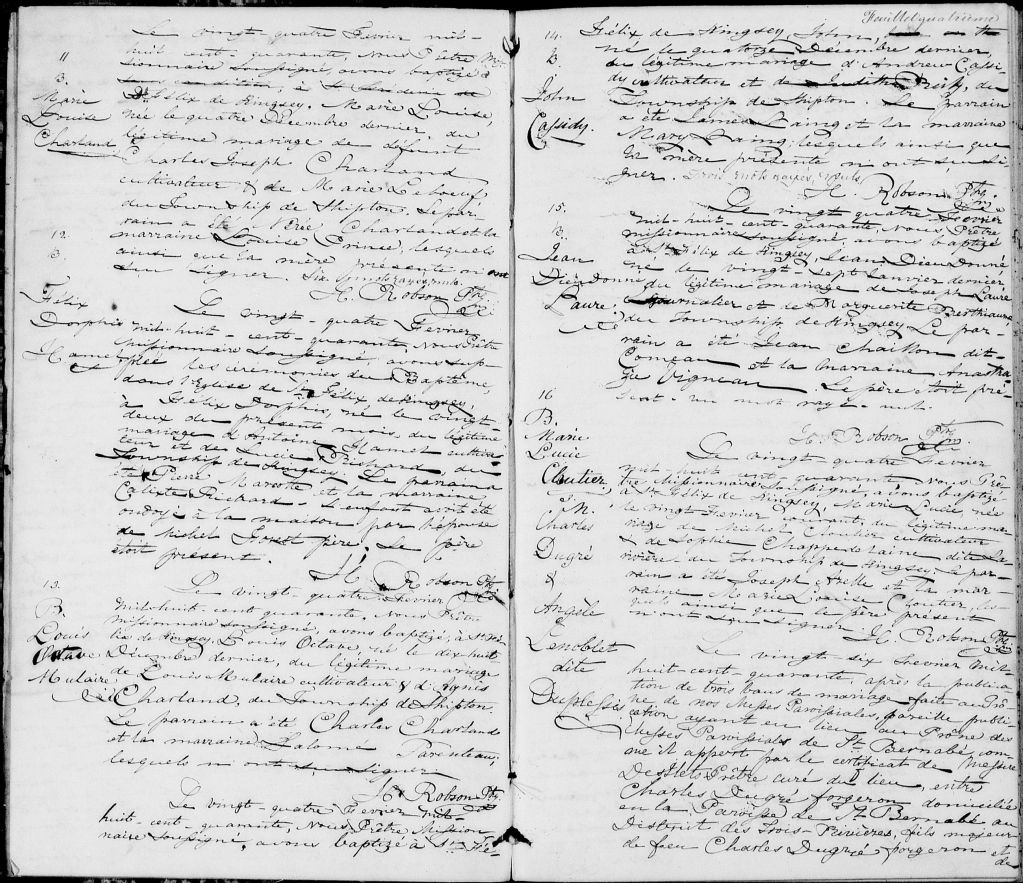 11
B.
Marie
Louise
Charland
Le vingt quatre Fevrier mil-
huit cent-quarante, Nous Prêtre Mis-
sionnaire soussigné, avons baptisé à
St. Félix de Kingsey, Marie Louise,
née le quatre Décembre dernier, du
légitime mariage de défunt
Charles Joseph Charland
cultivateur & de Marie Leboeuf,
du Township de Shipton. Le par-
rain a été Pérée Charland et la
marraine Louise Prince, lesquels
ainsi que la mère présente n'ont
su signer. Six mots rayés nuls.
H. Robson Ptre
12.
B.
Félix
Dorphis
Hamel
Le vingt-quatre Fevrier
mil-huit-cent-quarante Nous Prêtre
Missionnaire soussigné, avons sup-
pléé les cérémonies du Baptême,
dans l'Eglise de St. Félix de Kingsey,
à Félix Dorphis, né le vingt-
deux du présent mois, du légitime
mariage d'Antoine Hamel cultiva-
teur et de Lucie Richard, du
Township de Kingsey. Le parrain a
été Pierre Marcotte et la marraine
Calixte Richard. L'enfant avoit été
ondoyé à la maison par l'épouse
de Michel père; Le père
étoit présent.
H. Robson Ptre
13.
B.
Louis
Octave
Mulaire
Le vingt-quatre Fevrier
mil-huit-cent quarante, Nous Prêtre
missionnaire soussigné, avons baptizé, à St. Fé-
lix de Kingsey, Louis Octave, né le dix-huit
Décembre dernier, du légitime mariage
de Louis Mulaire cultivateur & d'Agnès
Charland, du Township de Shipton.
Le parrain a été Charles Charland
et la marraine Salomé Parenteau,
lesquels n'ont su signer
H. Robson Ptre
Le vingt-quatre Fevrier mil-
huit-cent-quarante, Nous Prêtre Mission-
naire soussigné, avons baptizé à St. Fé-
Feuillet quatrième
14.
B
John
Cassidy.
Félix de Kingsey, John,
né le quatorze Décembre dernier,
du légitime mariage d'Andrew Cassi-
dy cultivateur et de Judith Reily, du
Township de Shipton. Le parrain
a été James Laing et la marraine
Mary Laing; lesquels ainsi que
la mère présente n'ont su si-
gner. Trois mots rayés nuls
H. Robson Ptre
15.
B.
Jean
Dieudonné
Laure
Le vingt quatre Fevrier
mil-huit-cent-quarante, Nous, Prêtre
missionnaire soussigné, avons baptizé
à St. Félix de Kingsey, Jean Dieudonné
né le vingt-sept Janvier dernier
du légitime mariage de Joseph Laure
journalier et de Marguerite Berthiaume
du Township de Kingsey. Le par-
rain a été Jean Chaisson dit-
Comeau et la marraine Anasta-
zie Vigneau. Le père étoit pré-
sent. Un mot rayé nul.
H. Robson Ptre
16
B.
Marie
Lucie
Cloutier
Le vingt-quatre Fevrier
mil-huit-cent quarante Nous Prê-
tre Missionnaire soussigné, avons baptizé
à St. Félix de Kingsey, Marie Lucie née
le vingt Fevrier courant, du légitime ma-
riage de Michel Cloutier cultivateur
& de Sophie Chappedelaine dite La-
rivière du Township de Kingsey. Le par-
rain a été Joseph et la mar-
raine Marie Louise Cloutier, les-
quels ainsi que le père présent
n'ont su signer. H. Robson Ptre
M.
Charles
Dugré
&
Angèle
Lenoblet
dite
Duplessis
Le vingt-six Fevrier mil-
huit-cent-quarante, après la publica-
tion de trois bans de mariage faite au Prô-
ne de nos Messes Paroissiales, pareille publi-
cation ayant eu lieu au Prône des
Messes Paroissiales de St. Bernabé, com-
me il appert par le certificat de Messire
Desilets Prêtre curé du lieu, entre
Charles Dugré forgeron domicilié
en la Paroisse de St Bernabé au
District des Trois-Rivières, fils majeur
de feu Charles Dugré forgeron et
de